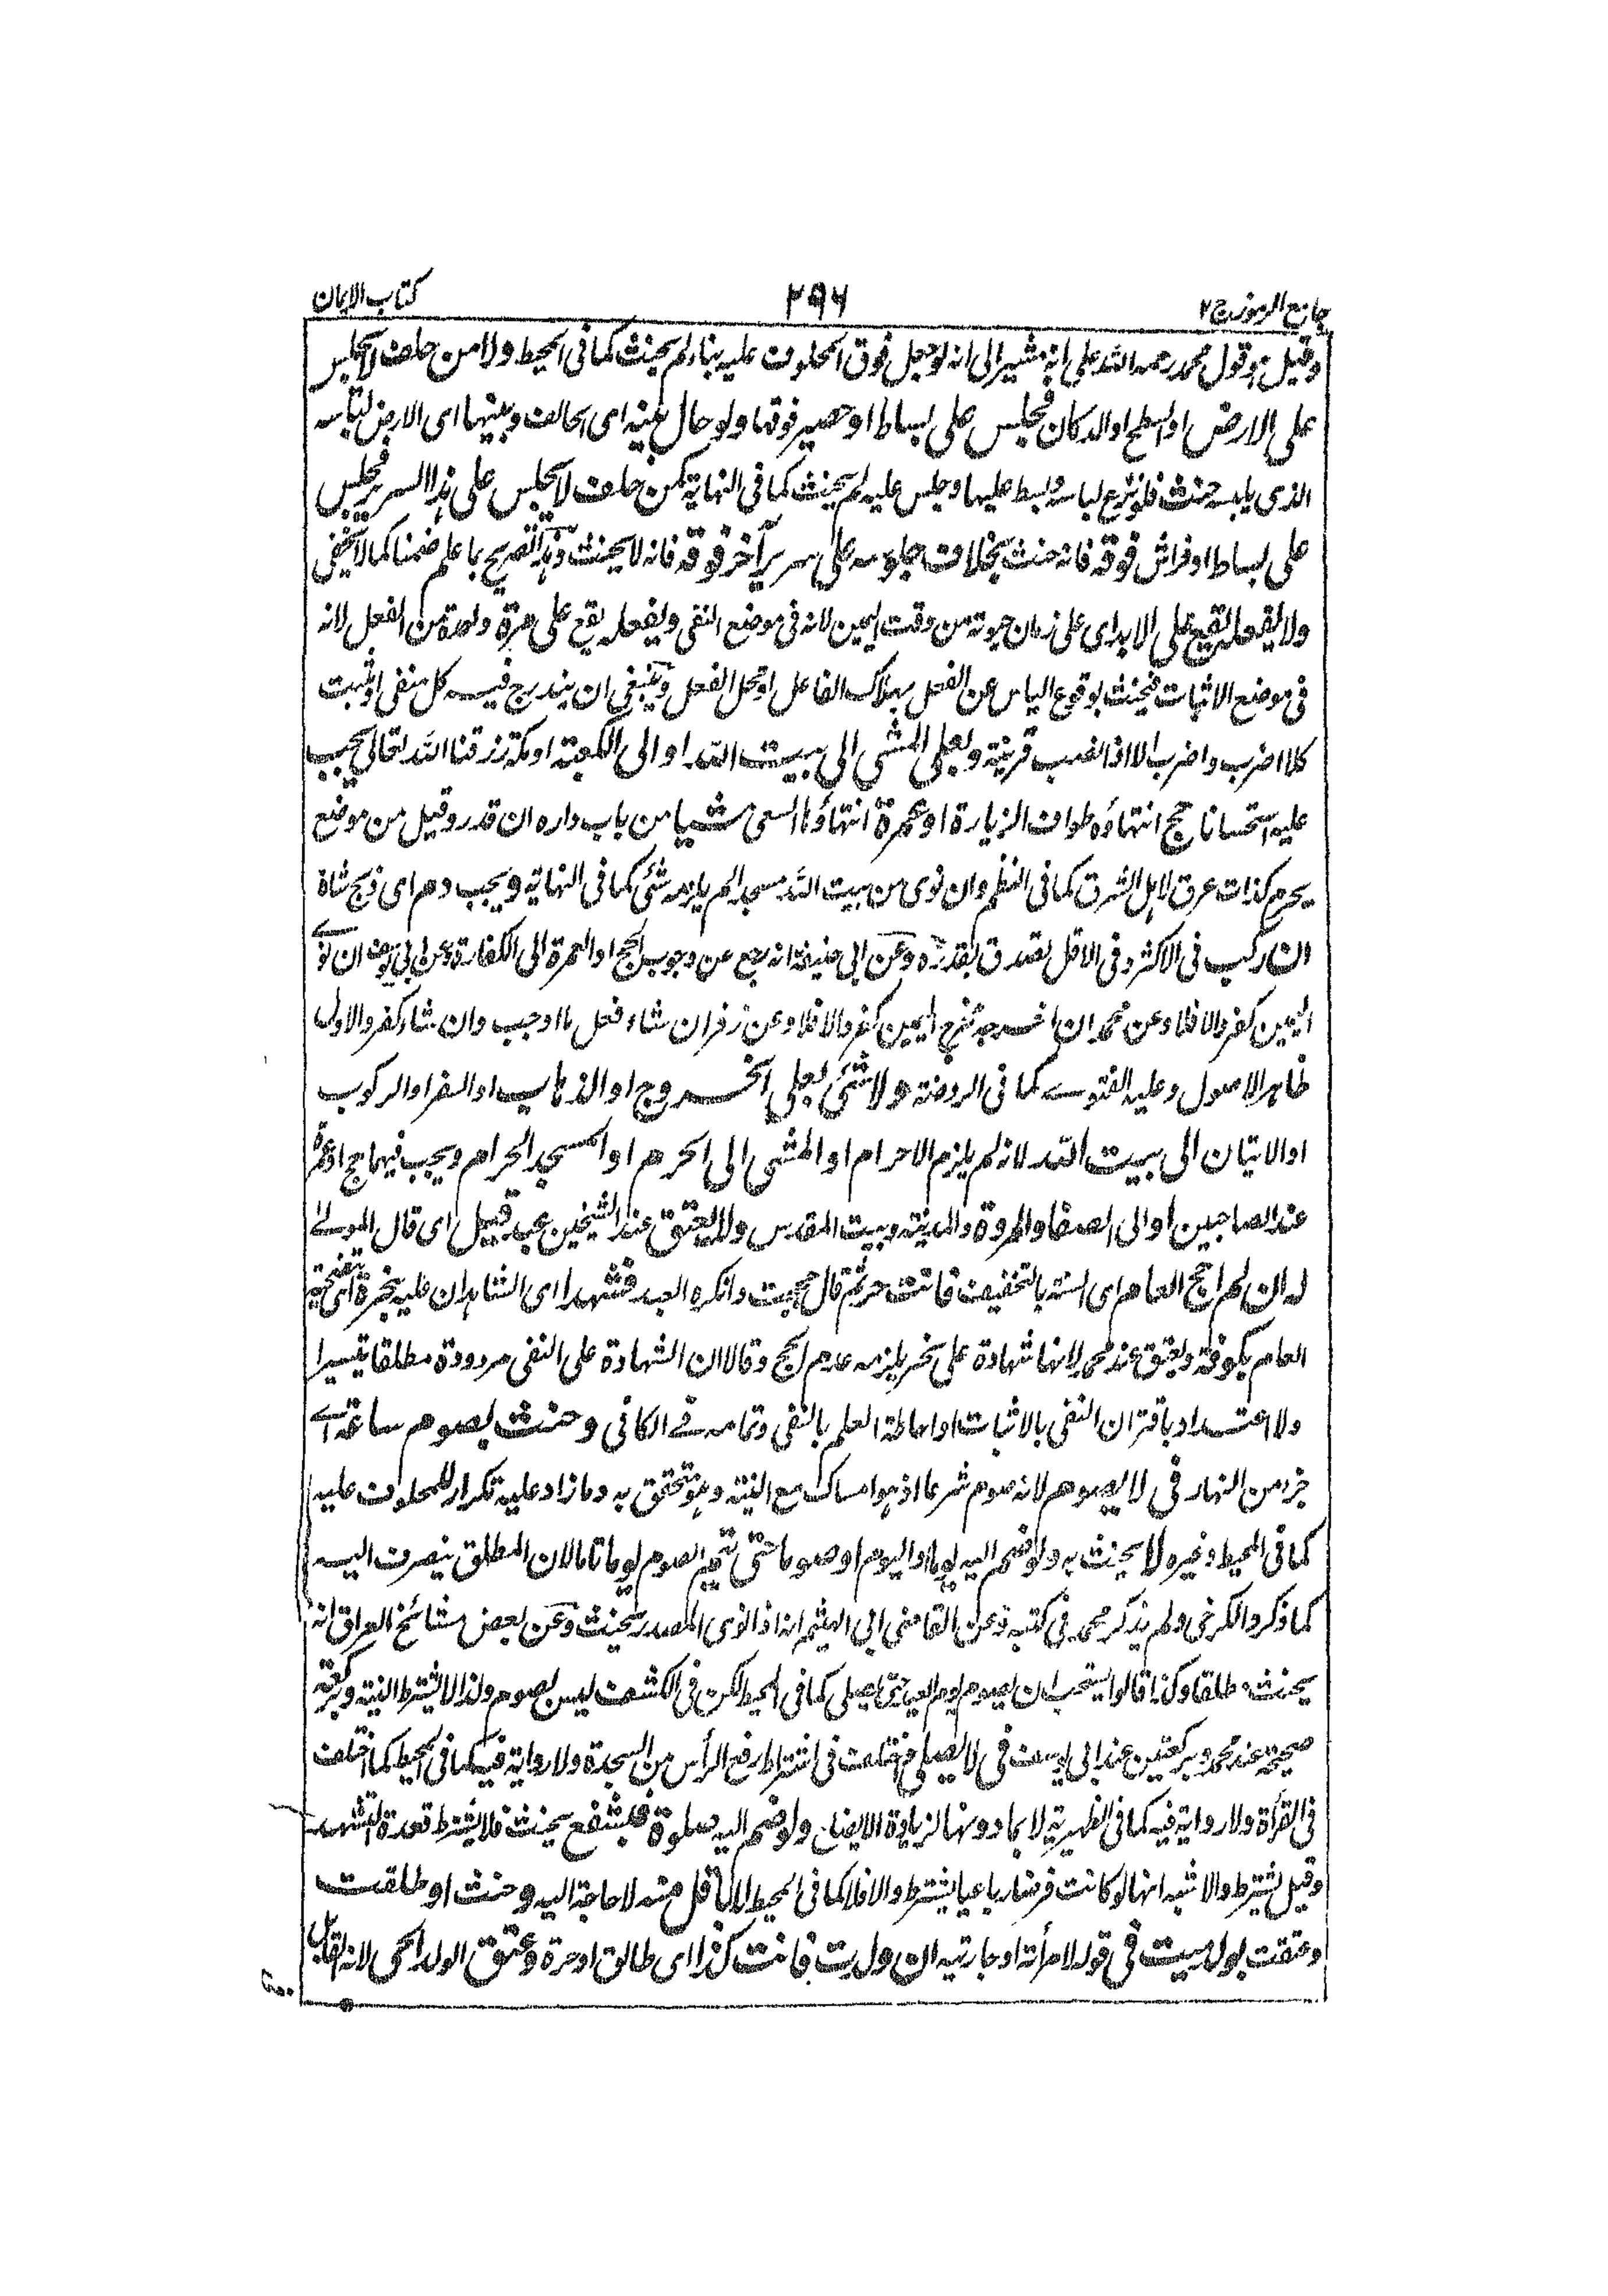 جامع الرموز ج ٢
٢٩٦
كتاب الايمان
وقيل هو قول محمد رحمه الله على انه مشير الى انه لو جعل فوق المحلوف عليه بناء لم يحنث كما فى المحيط ولا من حلف لا يجلس
على الارض او السطح او الدكان فجلس على بساط او حصير فوقها ولو حال بينه اى الحالف وبينها اى الارض لباسه
الذى يلبسه حنث فلو نزع لباسه وبسط عليها وجلس عليه لم يحنث كما فى النهاية كمن حلف لا يجلس على هذا السرير فجلس
على بساط او فراش فوقه فانه حنث بخلاف جلوسه على سرير آخر فوقه فانه لا يحنث وهذا تصريح بما علم ضمنا كما لا يخفى
ولا يفعله يقع على الابد اى على زمان حيوته من وقت اليمين لانه فى موضع النفى ويفعله يقع على مرة واحدة من الفعل لانه
فى موضع الاثبات فيحنث بوقوع الياس عن الفعل بهلاك الفاعل او محل الفعل وينبغى ان يندرج فيه كل منفى او مثبت
كلا اضرب واضرب الا اذا نصب قرينة وبعلى المشى الى بيت الله او الى الكعبة او مكة رزقنا الله تعالى يجب
عليه استحسانا حج انتهاؤه طواف الزيارة او عمرة انتهاؤها السعى مشيا من باب داره ان قدر وقيل من موضع
يحرم كذات عرق لاهل الشرق كما فى النظم وان نوى من بيت الله مسجدا لم يلزمه شئ كما فى النهاية ويجب دم اى ذبح شاة
ان ركب فى الاكثر وفى الاقل تصدق بقدره وعن ابى حنيفة انه رجع عن وجوب الحج او العمرة الى الكفارة وعن ابى يوسف ان نوى
اليمين كفر والا فلا وعن محمد ان اخرجه مخرج اليمين كفر والا فلا وعن زفر ان شاء فعل ما اوجب وان شاء كفر والاول
ظاهر الاصول وعليه الفتوى كما فى الروضة ولا شئ بعلى الخروج او الذهاب او السفر او الركوب
او الاتيان الى بيت الله لانه لم يلزم الاحرام او المشى الى الحرم او المسجد الحرام ويجب فيهما حج او عمرة
عند الصاحبين او الى الصفا والمروة والمدينة وبيت المقدس ولا يعتق عند الشيخين عبد قيل اى قال المولى
له ان لم احج العام اى السنة بالتخفيف فانت حر ثم قال حججت وانكره العبد فشهدا اى الشاهدان عليه بنحره اى تضحية
العام بكوفة ويعتق عند محمد لانها شهادة على نحر يلزمه عدم الحج وقالا ان الشهادة على النفى مردودة مطلقا تيسيرا
ولا اعتداد باقتران النفى بالاثبات او احاطة العلم بالنفى وتمامه فى الكافى وحنث بصوم ساعة اى
جزء من النهار فى لا يصوم لانه صوم شرعا اذ هو امساك مع النية وهو متحقق به وما زاد عليه تكرار للمحلوف عليه
كما فى المحيط وغيره لا يحنث به ولو ضم اليه يوما او اليوم او صوما حتى يتم الصوم يوما تاما لان المطلق ينصرف اليه
كما ذكره الكرخى ولم يذكر محمد فى كتبه وعن القاضى ابى الهيثم انه اذا نوى المصدر يحنث وعن بعض مشائخ العراق انه
يحنث مطلقا وكذا قالوا يستحب ان يصوم يوم العيد حتى يصلى كما فى المحيط لكن فى الكشف ليس بصوم ولذا لا يشترط النية وبركعة
صحيحة عند محمد وبركعتين عند ابى يوسف فى لا يصلى واختلف فى اشتراط رفع الرأس من السجدة ولا رواية فيه كما فى المحيط كما اختلف
فى القرأة ولا رواية فيه كما فى الظهيرية لا بما دونها لزيادة الايضاح ولو ضم اليه صلوة فبشفع يحنث فلا يشترط قعدة التشهد
وقيل تشترط والاشبه انها لو كانت فرضا رباعيا يشترط والا فلا كما فى المحيط لا باقل منه لا حاجة اليه وحنث او طلقت
وعتقت بولد ميت فى قوله لامرأته او جاريته ان ولدت فانت كذا اى طالق او حرة وعتق الولد الحى لانه القابل